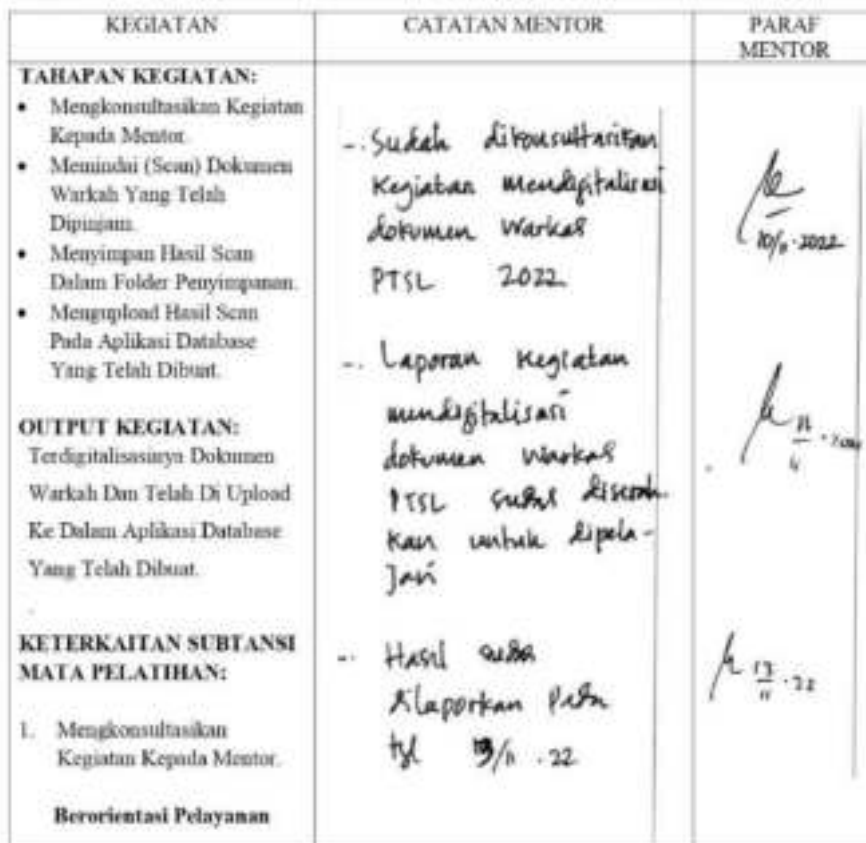 KEGIATAN
CATATAN MENTOR
PARAF
MENTOR
TAHAPAN KEGIATAN:
• Mengkonsultasikan Kegiatan
Kepada Mentor.
• Memindai (Scan) Dokumen
Warkah Yang Telah
Dipinjam.
• Menyimpan Hasil Scan
Dalam Folder Penyimpanan.
• Mengupload Hasil Scan
Pada Aplikasi Database
Yang Telah Dibuat.
OUTPUT KEGIATAN:
Terdigitalisasinya Dokumen
Warkah Dan Telah Di Upload
Ke Dalam Aplikasi Database
Yang Telah Dibuat.
KETERKAITAN SUBTANSI
MATA PELATIHAN:
1. Mengkonsultasikan
Kegiatan Kepada Mentor.
Berorientasi Pelayanan
- Sudah dikonsultasikan
Kegiatan mendigitalisasi
dokumen Warkah
PTSL 2022
- Laporan Kegiatan
mendigitalisasi
dokumen Warkah
PTSL sudah diserah
kan untuk dipela-
jari
- Hasil sudah
dilaporkan Pada
tgl /11 . 22
10/11 . 2022
11
13/11 . 22